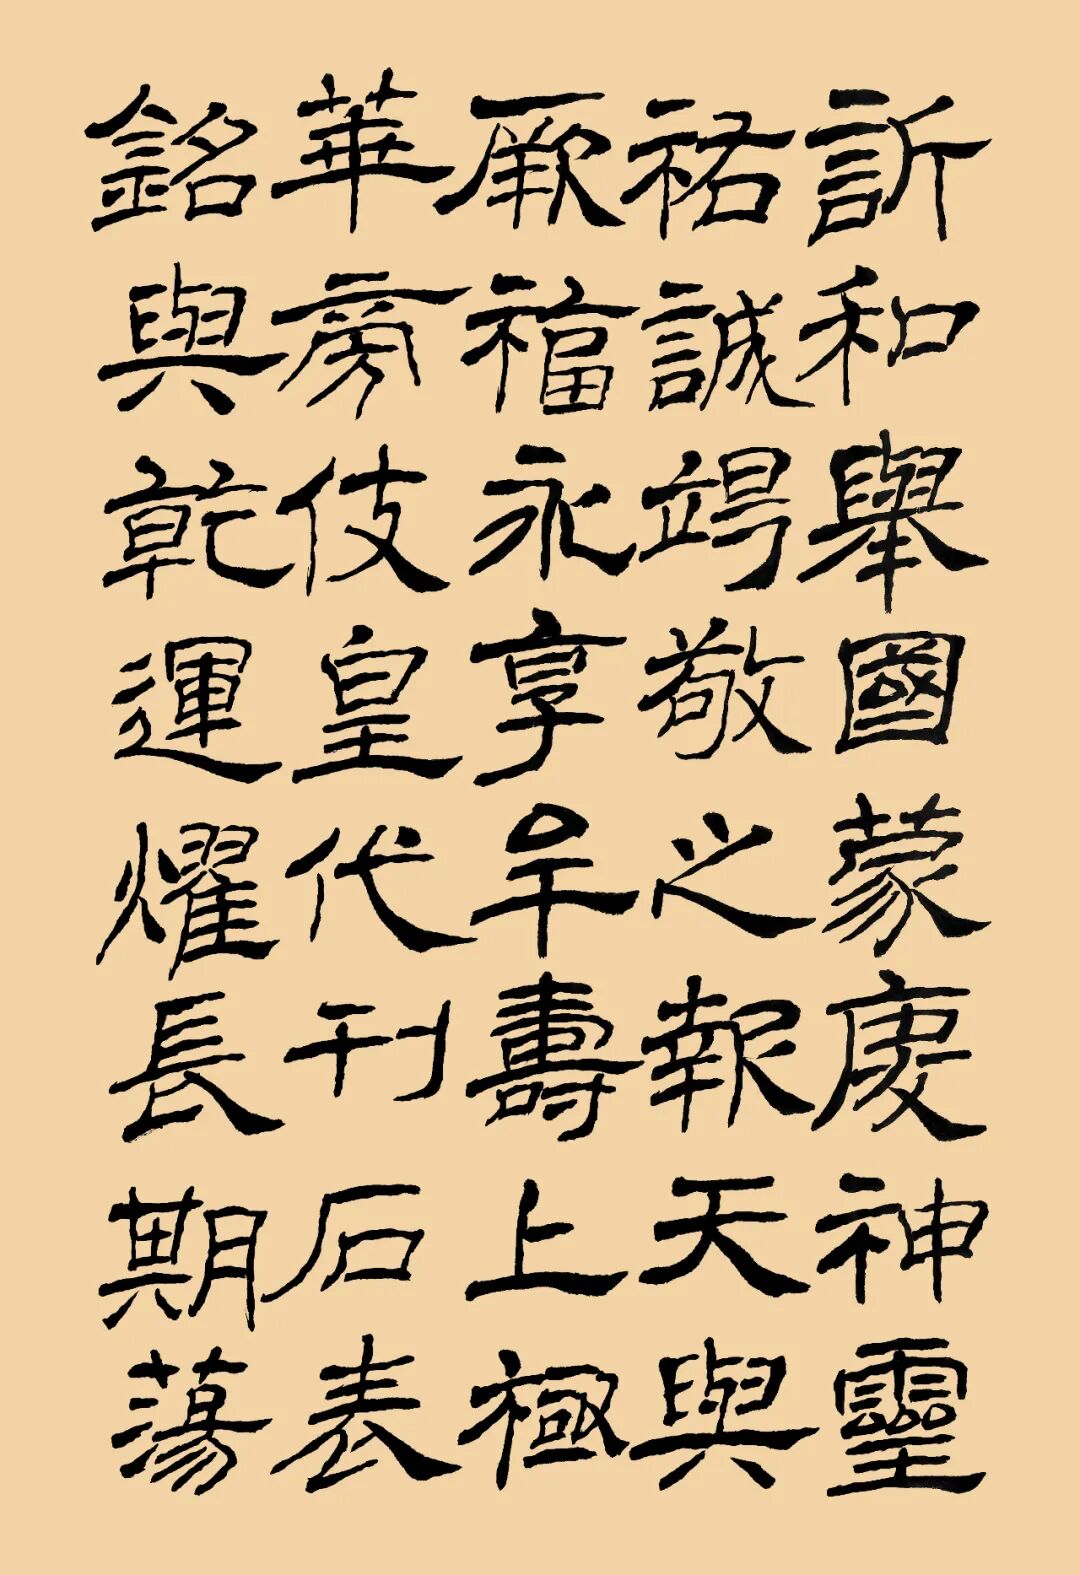 訢和舉國蒙慶神靈
祐誠竭敬之報天與
厥福永享牟壽上極
華旁伎皇代刊石表
銘與乾運燿長期蕩